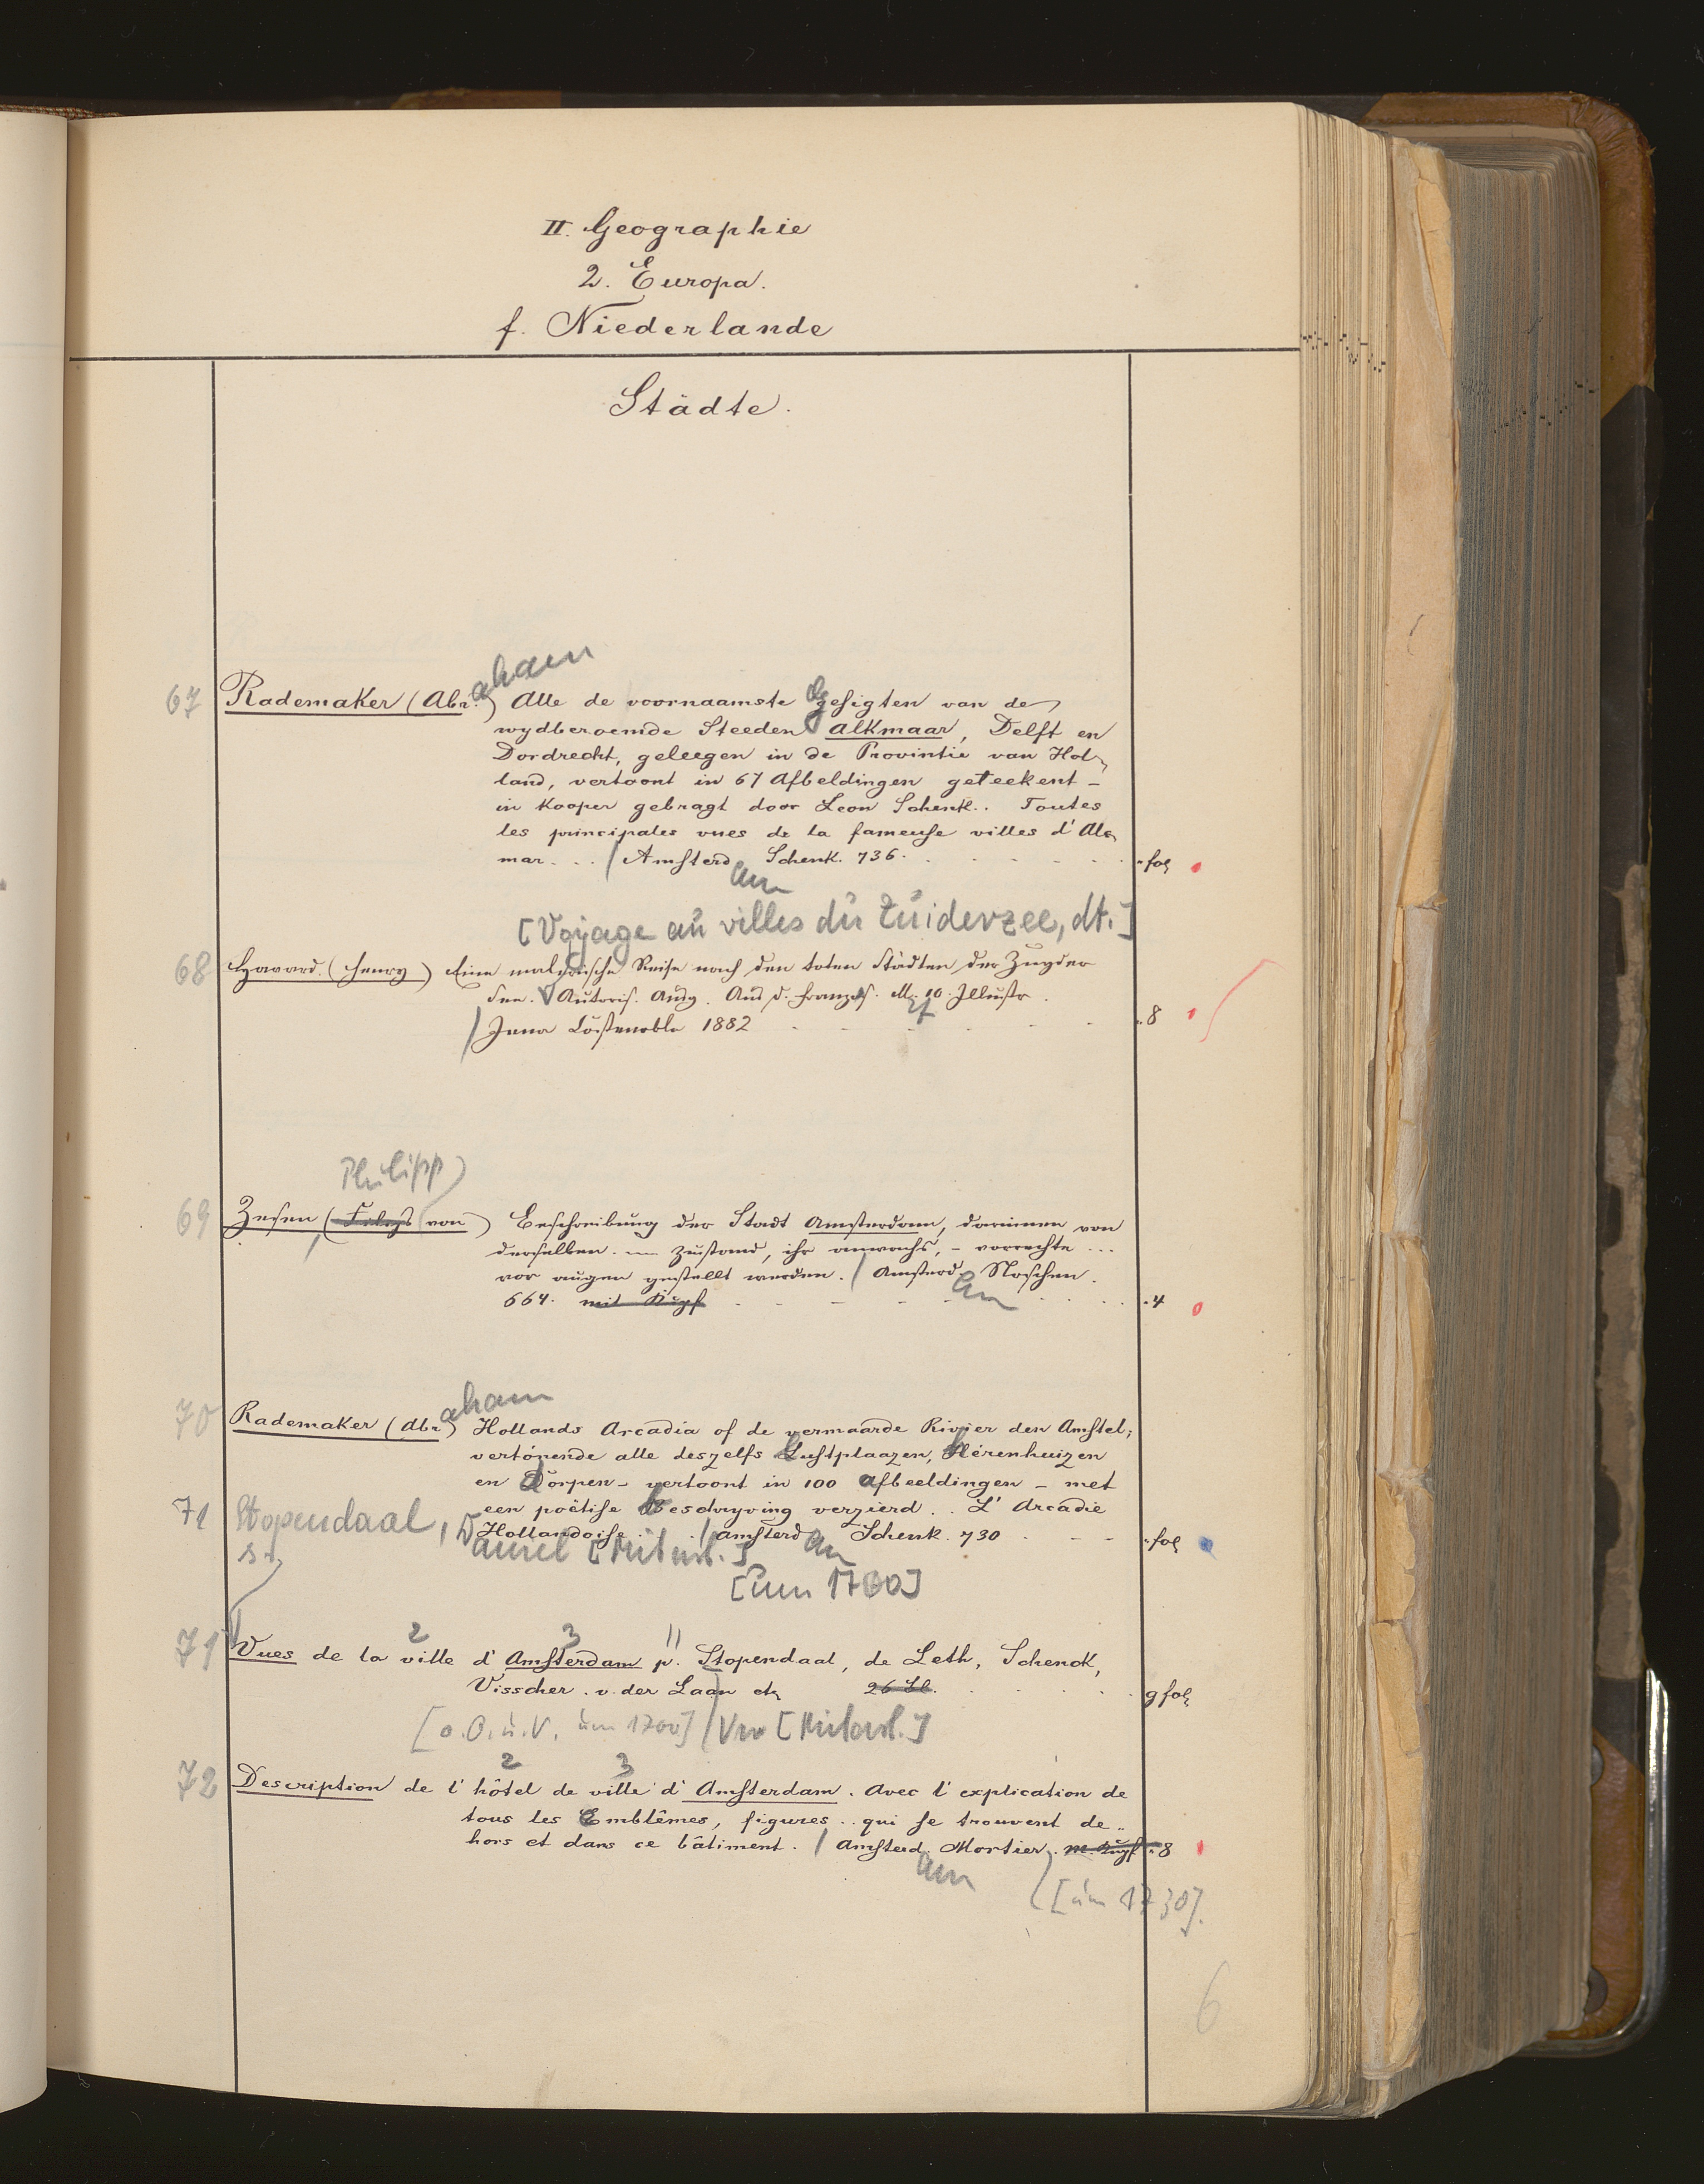 II. Geographie
2. Europa.
f. Niederlande
Städte.
aham
67 Rademaker (Abr.) Alle de voornaamste gesigten van de
wydberoemde Steeden Alkmaar, Delft en
Dordrecht, geleegen in de Provintie van Hol-
land, vertoont in 67 Afbeldingen geteekent –
in Kooper gebragt door Leon Schenk.. Toutes
les principales vues de la fameuse villes d'Alc
mar. . . / Amsterd Schenk. 736. fol
am
[Voyage au villes du Zuiderzee, dt.]
68 Havard. (Henry) Eine malerische Reise nach den toten Städten der Zuyder
See. Autoris. Ausg. Aus d. Französ. M. 10 Illustr.
/ Jena Costenoble 1882 8
Philipp
69 Zesen, (Filips von) Beschreibung der Stadt Amsterdam, darinnen von
derselben. zustand, ihr anwachs, – vorrechte ...
vor augen gestellt werden. / Amsterd Noschen.
am
664. mit Kupf 4
aham
70 Rademaker (Abr) Hollands Arcadia of de vermaarde Rivier den Amstel;
vertónende alle deszelfs Lustplaazen, Hérenhuizen
en Dorpen – vertoont in 100 afbeeldingen – met
een poëtise Beschryving verzierd. . L' Arcadie
Hollandoise . . / Amsterd Schenk. 730 fol
71 Stopendaal, Daniel [Mitarb.] am
[um 1700]
2 3 11
71 Vues de la ville d' Amsterdam p. Stopendaal, de Leth, Schenck,
Visscher. v. der Laan etc 26 Bl. gfol
[o.O.u.V. um 1700] / Von [Mitarb.]
2 3
72 Description de l' hôtel de ville d' Amsterdam. Avec l' explication de
tous les Emblêmes, figures.. qui se trouvent de..
hors et dans ce bâtiment. / Amsterd. Mortier. m. Kupf 8
am
[um 1730].
6